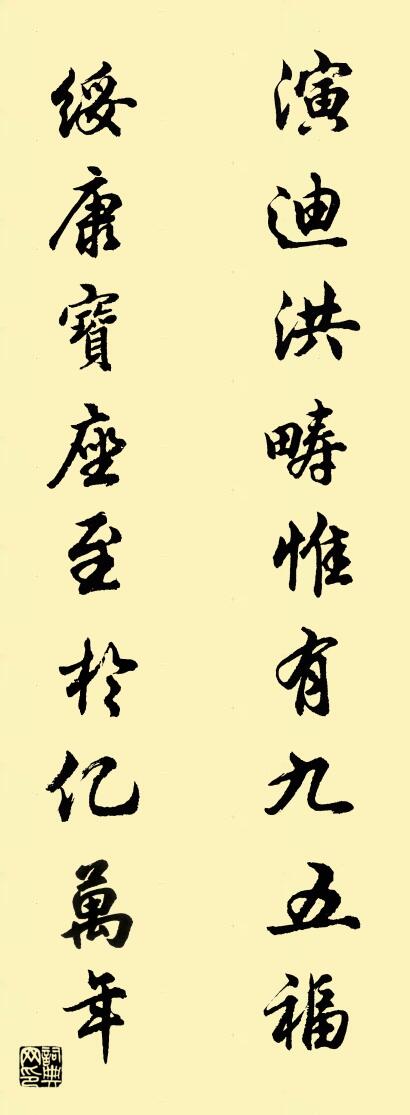 演迪洪疇惟有九五福
綏康寶座至於亿萬年
詞典网印